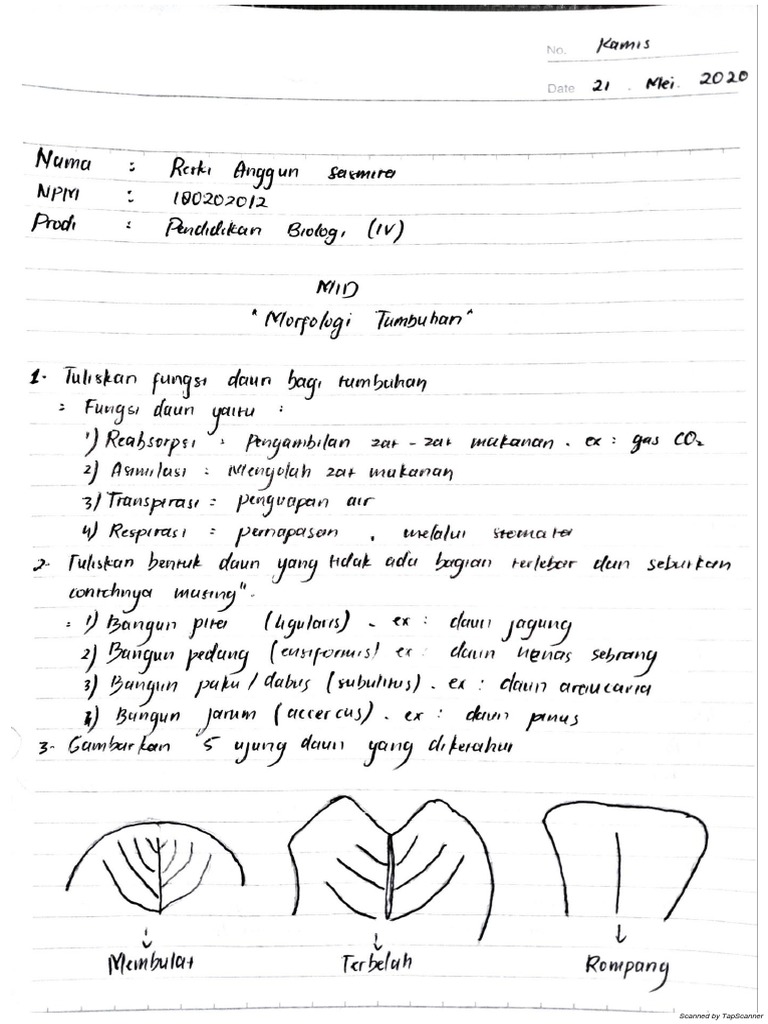 No. Kamis
Date 21 . Mei. 2020
Nama : Reski Anggun Sasmira
NPM : 180202012
Prodi : Pendidikan Biologi (IV)
MID
"Morfologi Tumbuhan"
1. Tuliskan fungsi daun bagi tumbuhan
= Fungsi daun yaitu :
1) Reabsorpsi : Pengambilan zat-zat makanan. ex : gas CO₂
2) Asimilasi : Mengolah zat makanan
3) Transpirasi : penguapan air
4) Respirasi : pernapasan , melalui stomata
2. Tuliskan bentuk daun yang tidak ada bagian terlebar dan sebutkan
contohnya masing".
= 1) Bangun pita (ligularis). ex : daun jagung
2) Bangun pedang (ensiformis) ex : daun nenas sebrang
3) Bangun paku / dabus (subulitus). ex : daun araucaria
4) Bangun jarum (accercus). ex : daun pinus
3. Gambarkan 5 ujung daun yang diketahui
Membulat
Terbelah
Rompang
Scanned by TapScanner